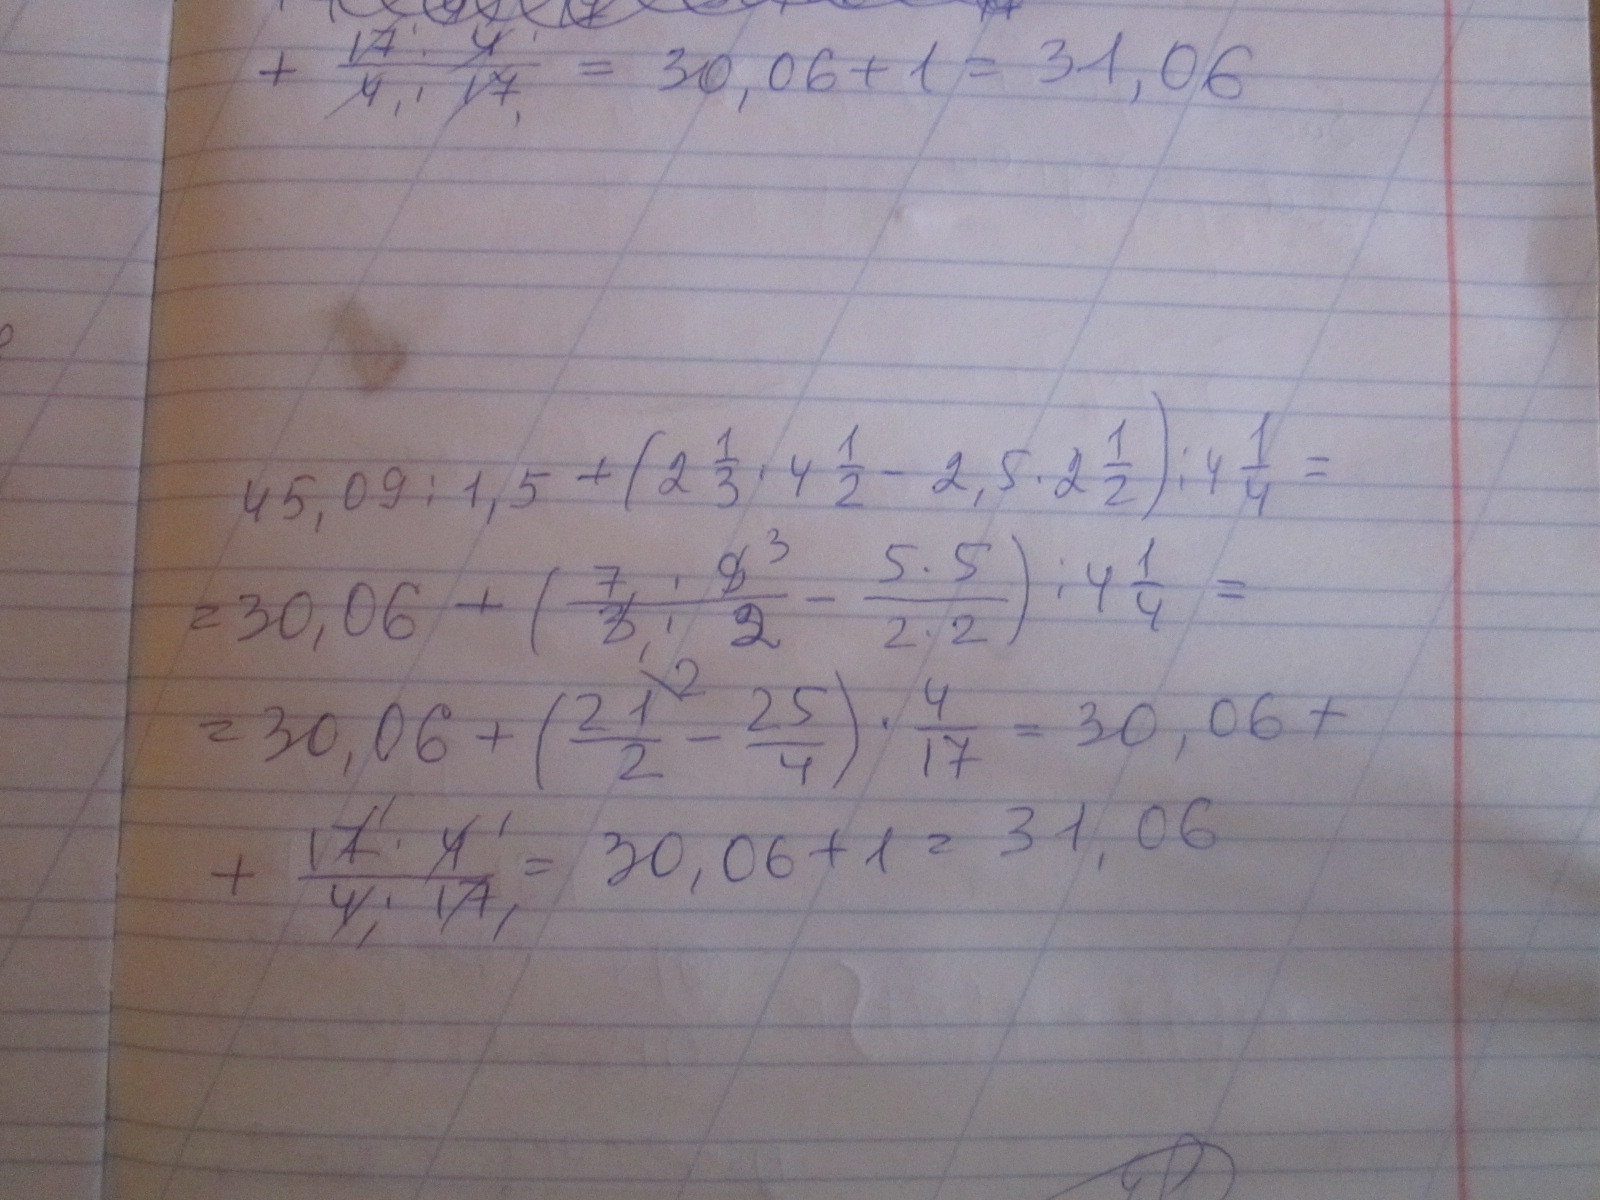 + 17 · 4 / 4 · 17 = 30,06 + 1 = 31,06
45,09 : 1,5 + (2 1/3 · 4 1/2 - 2,5 · 2 1/2) : 4 1/4 =
= 30,06 + (7 · 9 3 / 3 1 · 2 - 5 · 5 / 2 · 2) : 4 1/4 =
= 30,06 + (21 \2 / 2 - 25/4) · 4/17 = 30,06 +
+ 17 1 · 4 1 / 4 1 · 17 1 = 30,06 + 1 = 31,06